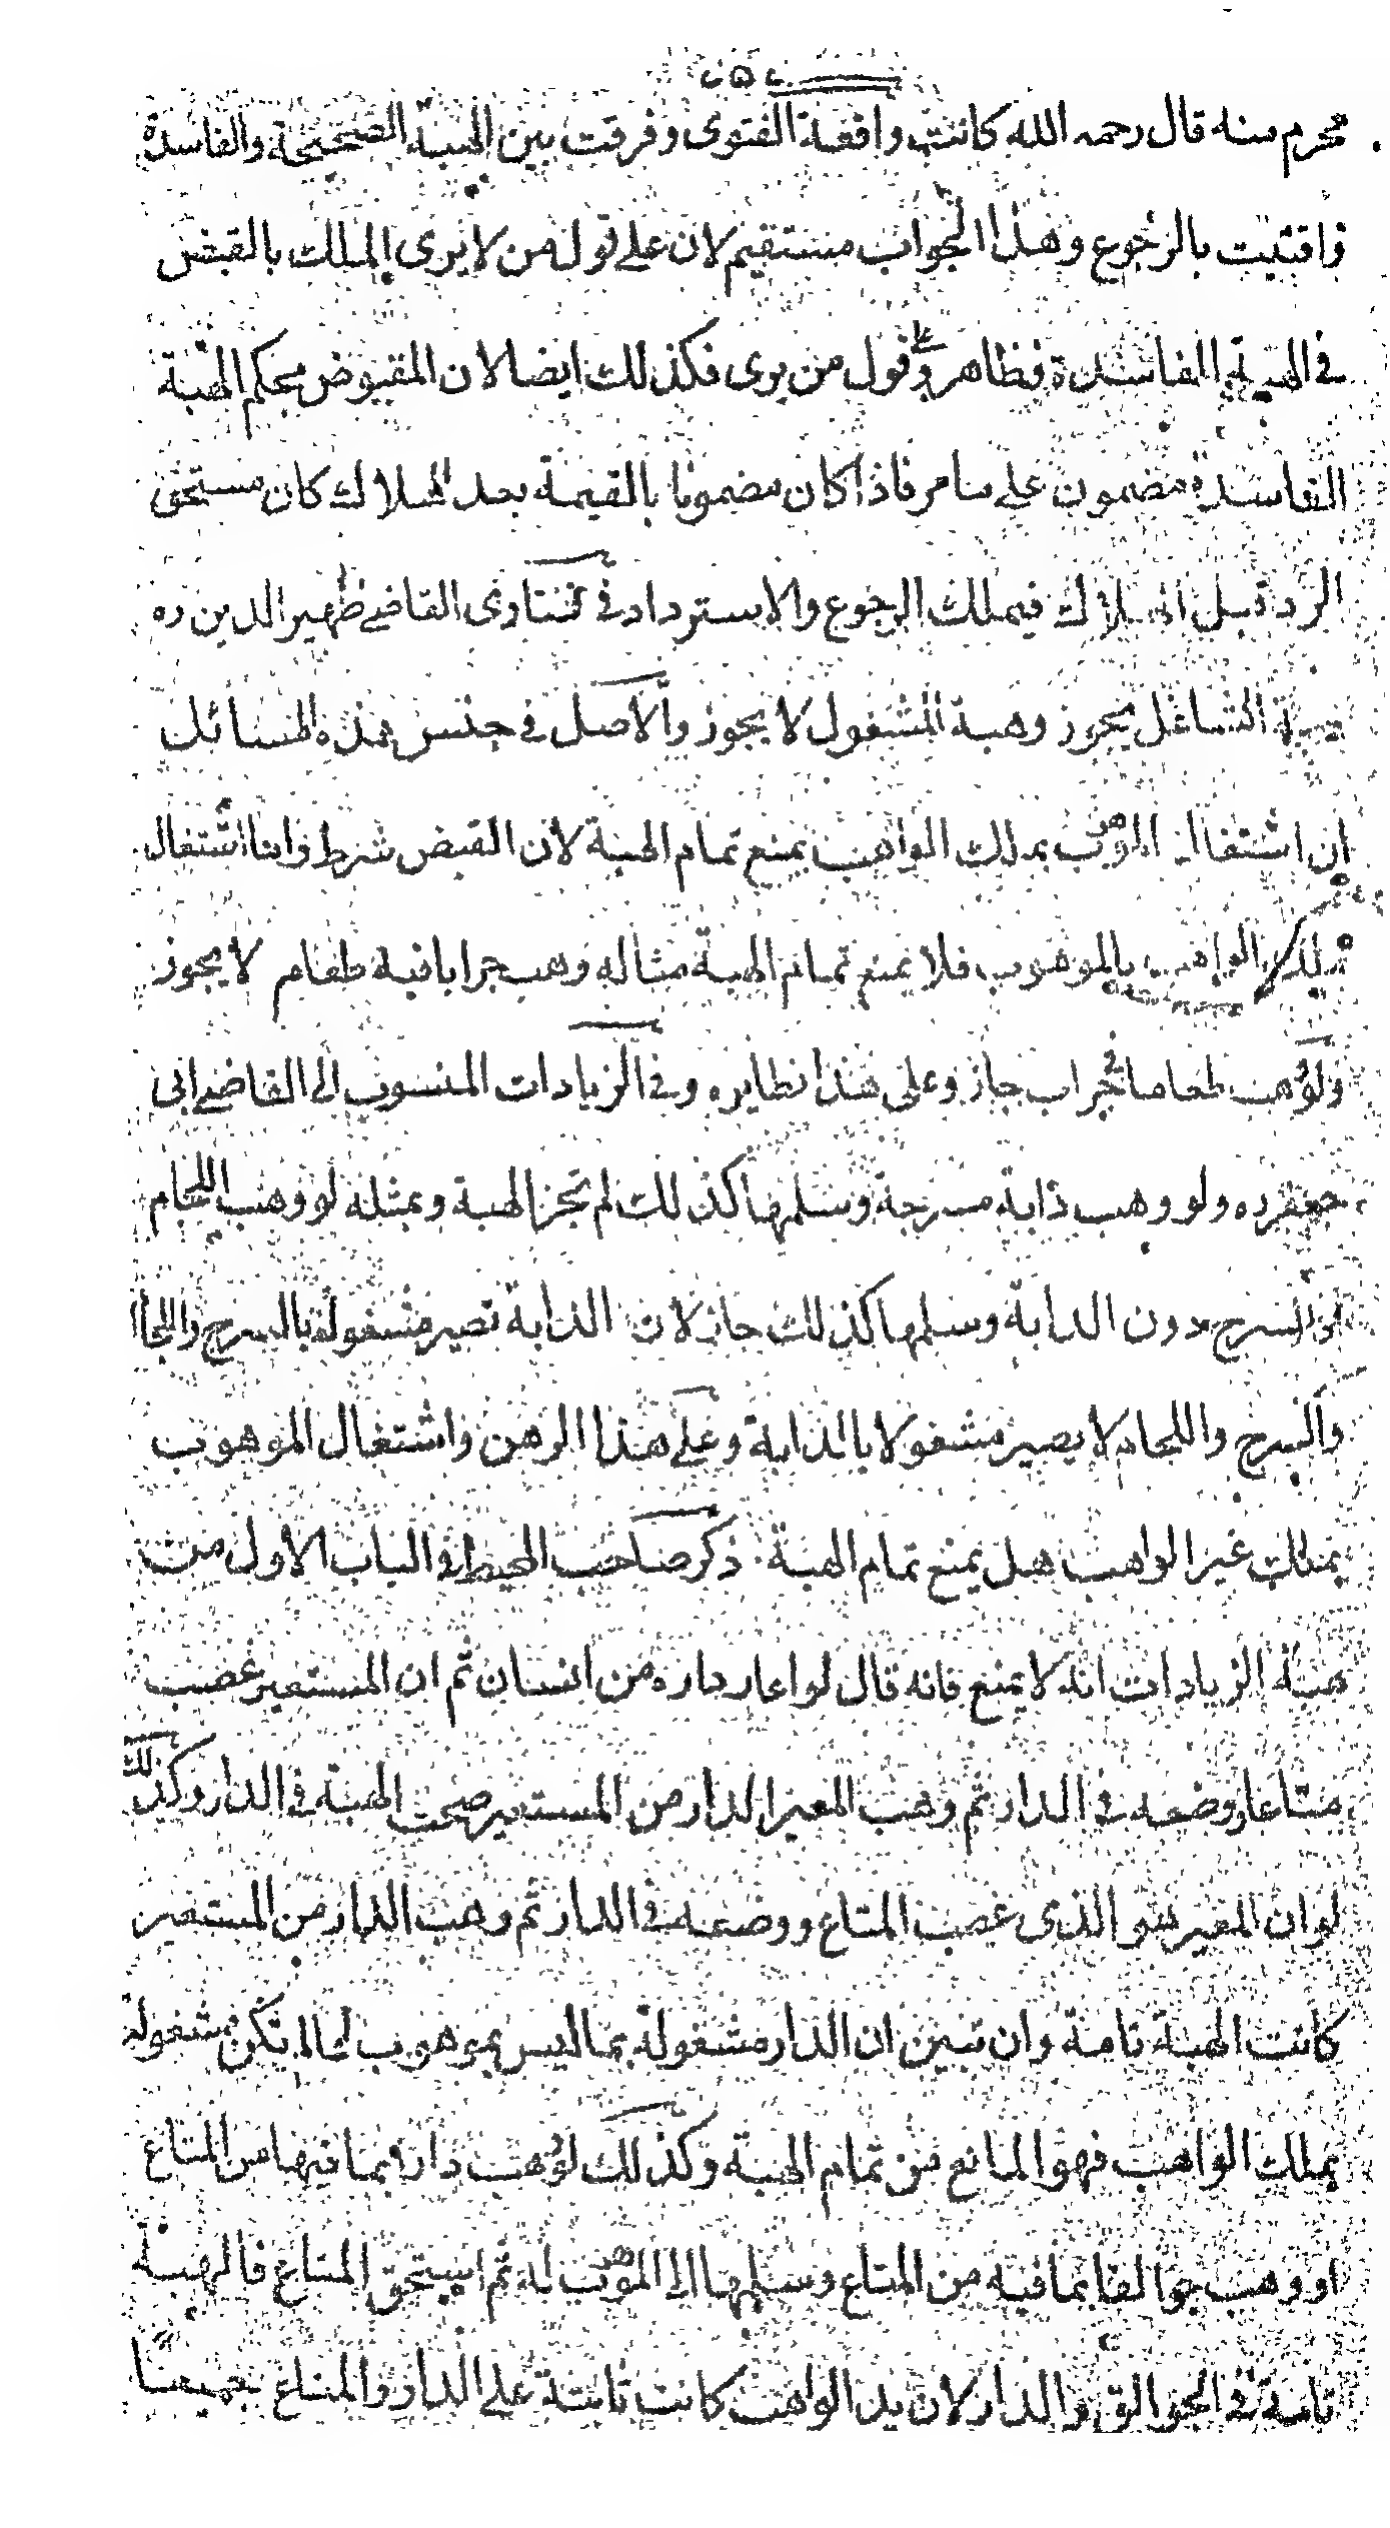 محرم منه قال رحمه الله كانت واقعة الفتوى وفرقت بين الهبة الصحيحة والفاسدة
فافتيت بالرجوع وهذا الجواب مستقيم لان على قول من لا يرى الملك بالقبض
فى الهبة الفاسدة فظاهر وعلى قول من يرى فكذلك ايضا لان المقبوض بحكم الهبة
الفاسدة مضمون على ما مر فاذا كان مضمونا بالقيمة بعد الهلاك كان مستحق
الرد قبل الهلاك فيملك الرجوع والاسترداد فى فتاوى القاضى ظهير الدين ره
هبة الشاغل يجوز وهبة المشغول لا يجوز والاصل فى جنس هذه المسائل
ان اشتغال الموهوب بملك الواهب يمنع تمام الهبة لان القبض شرط واما اشتغال
ملك الواهب بالموهوب فلا يمنع تمام الهبة مثاله وهب جرابا فيه طعام لا يجوز
ولو وهب طعاما فى جراب جاز وعلى هذا نظايره وفى الزيادات المنسوب الى القاضى ابى
جعفر ره ولو وهب دابة مسرجة وسلمها كذلك لم تجز الهبة وبمثله لو وهب اللجام
او السرج دون الدابة وسلمها كذلك جاز لان الدابة تصير مشغولة بالسرج واللجام
والسرج واللجام لا يصير مشغولا بالدابة وعلى هذا الرهن واشتغال الموهوب
بملك غير الواهب هل يمنع تمام الهبة ذكر صاحب المحيط فى الباب الاول من
هبة الزيادات انه لا يمنع فانه قال لو اعار داره من انسان ثم ان المستعير غصب
متاعا ووضعه فى الدار ثم وهب المعير الدار من المستعير صحت الهبة فى الدار وكذلك
لو ان المعير هو الذى غصب المتاع ووضعه فى الدار ثم وهب الدار من المستعير
كانت الهبة تامة وان تبين ان الدار مشغولة بما ليس بموهوب لما لم تكن مشغولة
بملك الواهب فهو المانع من تمام الهبة وكذلك لو وهب دارا بما فيها من المتاع
او وهب جوالقا بما فيه من المتاع وسلمها الى الموهوب له ثم استحق المتاع فالهبة
تامة فى الجوالق والدار لان يد الواهب كانت ثابتة على الدار والمتاع جميعا